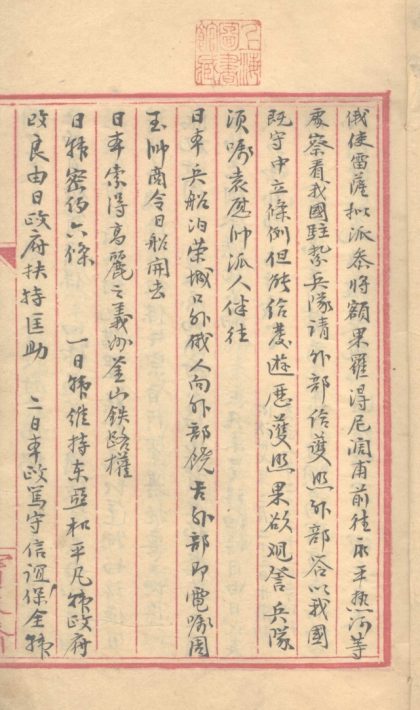 上海圖書館藏
俄使雷薩拟派叅將額果羅得尼闊甫前往永平熱河等
處察看我國駐紮兵隊請外部給護照外部答以我國
既守中立條例但能給發遊歷護照果欲观詧兵隊
須嘱袁慰帅派人伴往
日本兵船泊荣城口外俄人向外部饶舌外部即電嘱周
玉帅商令日船開去
日本索得高麗之義州釜山鉄路權
日韩密约六條 一日韩維持东亞和平凡韩政府
改良由日政府扶持匡助 二日本政篤守信誼保全韩